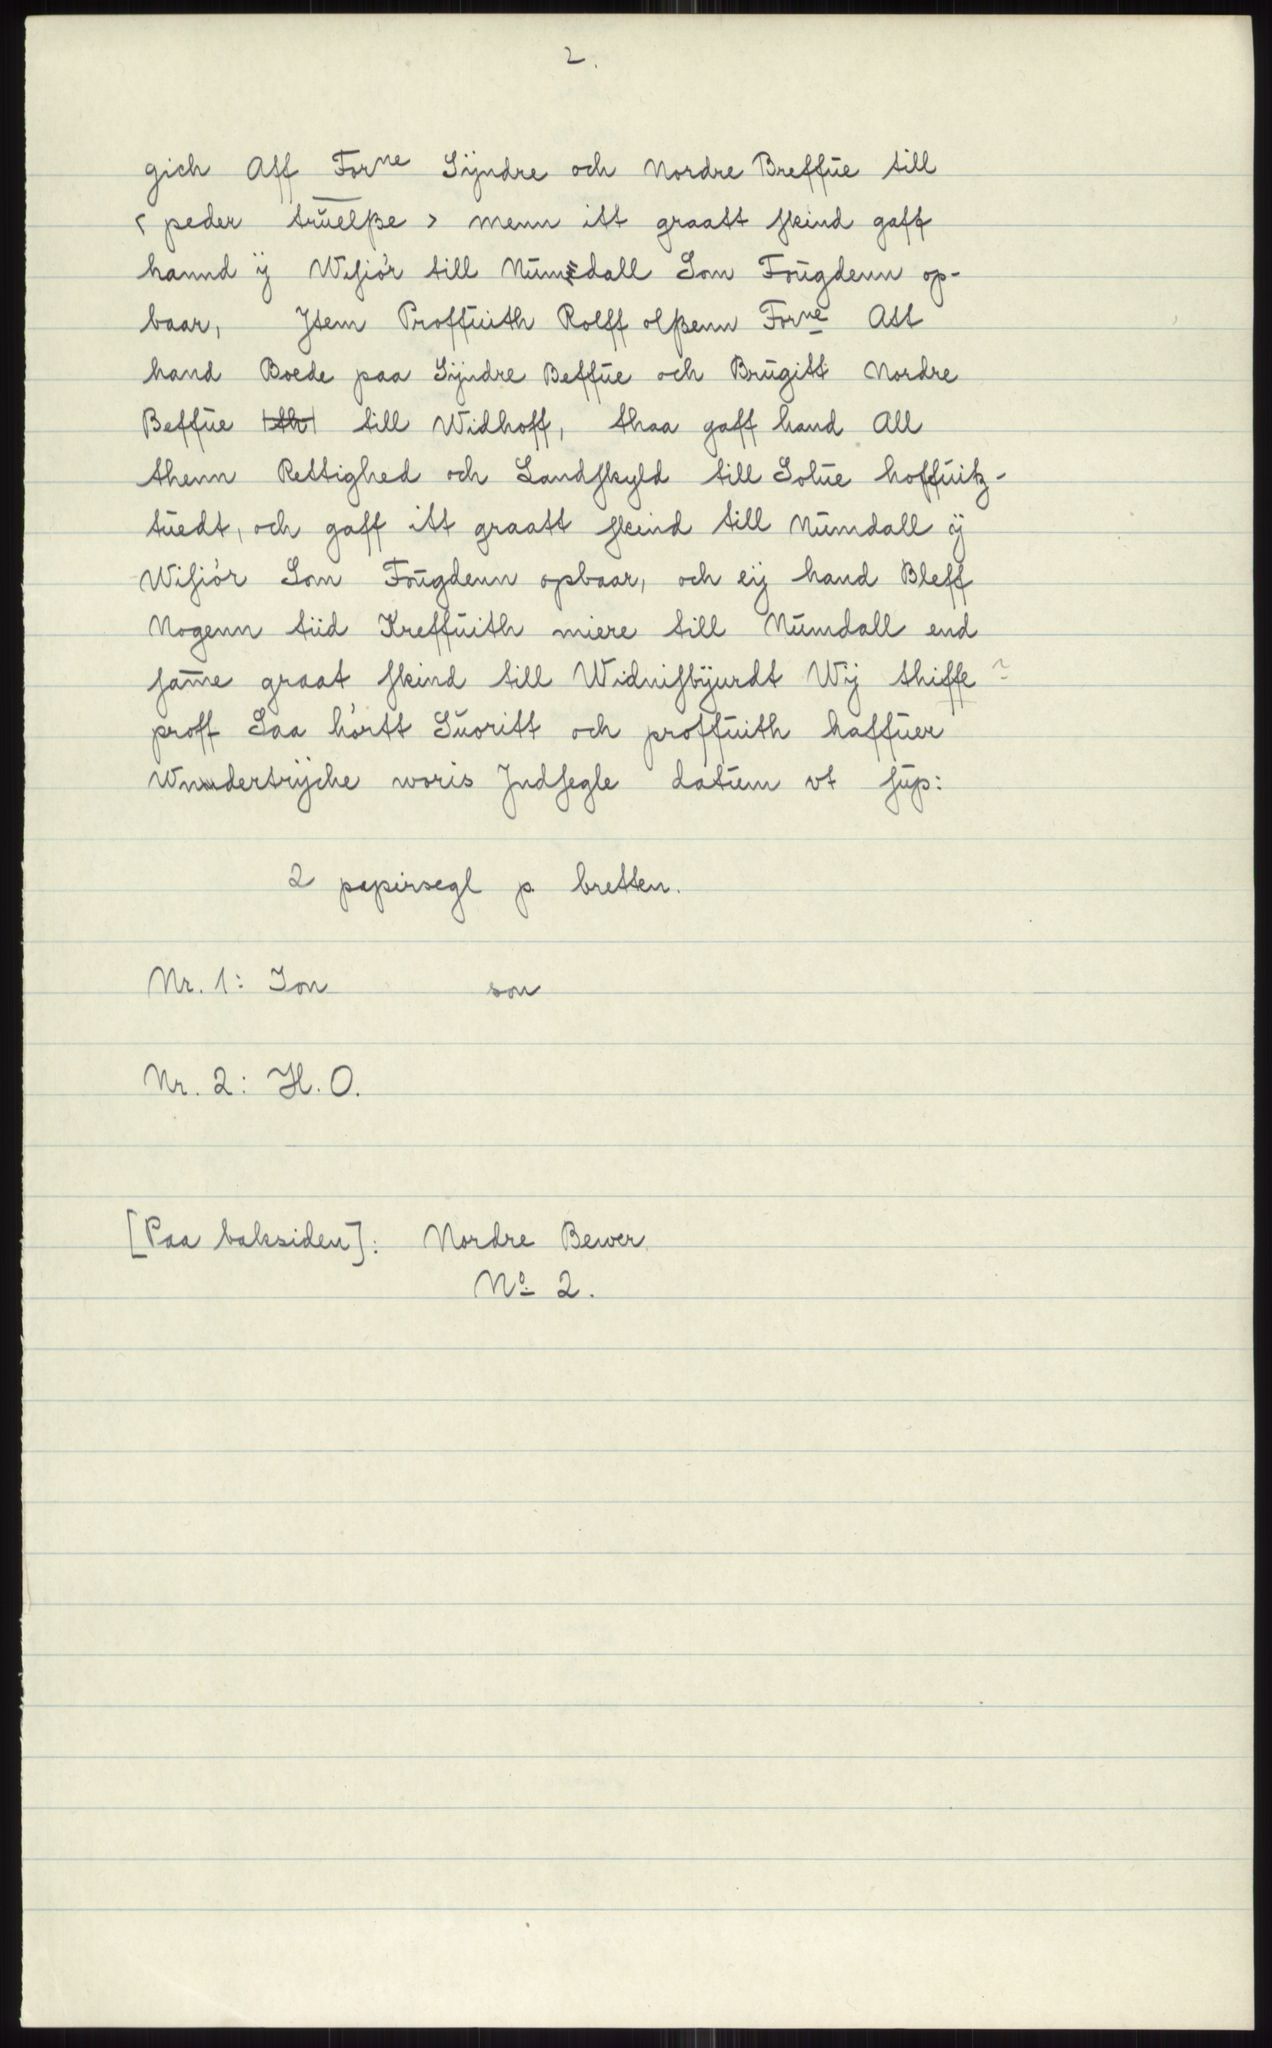 2.
gich Aff Forne Sÿndre och Nordre Breffue till
< peder truelße > menn itt graatt skind gaff
hannd ÿ Wisiór till Numdall Som Fougdenn op-
baar, Jtem Proffuith Rolff olßenn Forne Att
hand Boede paa Sÿndre Beffue och Brugitt Nordre
Beffue |th| till Widhoff, thaa gaff hand All
thenn Rettighed och Landskyld till Solue hoffuitz-
tuedt, och gaff itt graatt skind till Numdall ÿ
Wisiór Som Fougdenn opbaar, och eÿ hand Bleff
Nogenn tiid Kreffuith miere till Numdall end
same graat skind till Widnisbÿurdt Wÿ thisse ~
proff Saa hórtt Suoritt och proffuith haffuer
Wnndertrÿche woris Jndsegle datum vt sup:
2 papirsegl p. bretten.
Nr. 1: Ion son
Nr. 2: H. O.
[Paa baksiden]: Nordre Bewer
No 2.